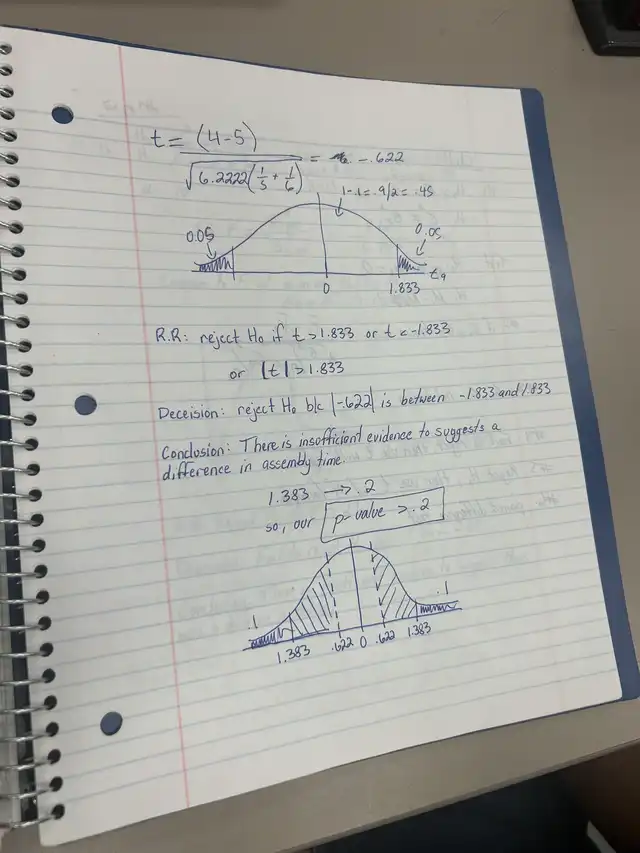 t = (4-5) / √6.2222(1/5 + 1/6) = -.622
1-.1=.9/2=.45
0.05 0.05
0 1.833 t9
R.R: reject Ho if t > 1.833 or t < -1.833
or |t| > 1.833
Deceision: reject Ho b/c |-.622| is between -1.833 and 1.833
Conclusion: There is insufficient evidence to suggests a
difference in assembly time.
1.383 → .2
so, our p-value > .2
.1 .1
1.383 .622 0 .622 1.383